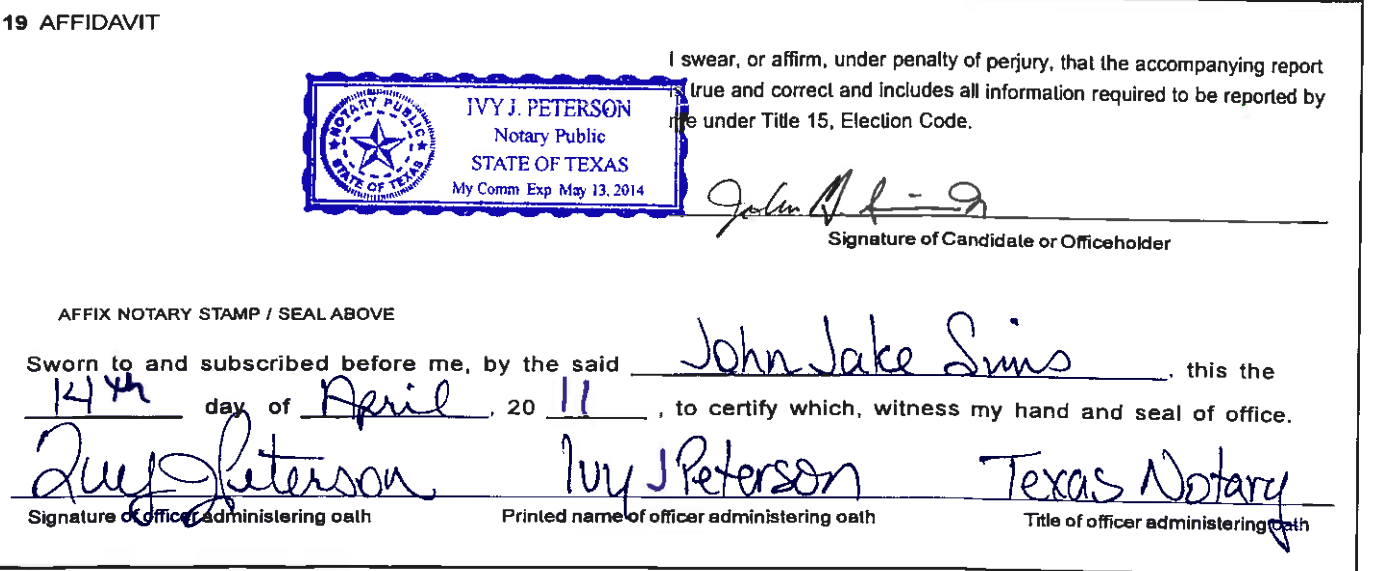 19 AFFIDAVIT
I swear, or affirm, under penalty of perjury, that the accompanying report
is true and correct and includes all information required to be reported by
me under Title 15, Election Code.
NOTARY PUBLIC
STATE OF TEXAS
IVY J. PETERSON
Notary Public
STATE OF TEXAS
My Comm Exp May 13, 2014
John
Signature of Candidate or Officeholder
AFFIX NOTARY STAMP / SEAL ABOVE
Sworn to and subscribed before me, by the said John Jake Sims, this the
14th day of April, 20 11, to certify which, witness my hand and seal of office.
Ivy J Peterson Ivy J Peterson Texas Notary
Signature of officer administering oath Printed name of officer administering oath Title of officer administering oath